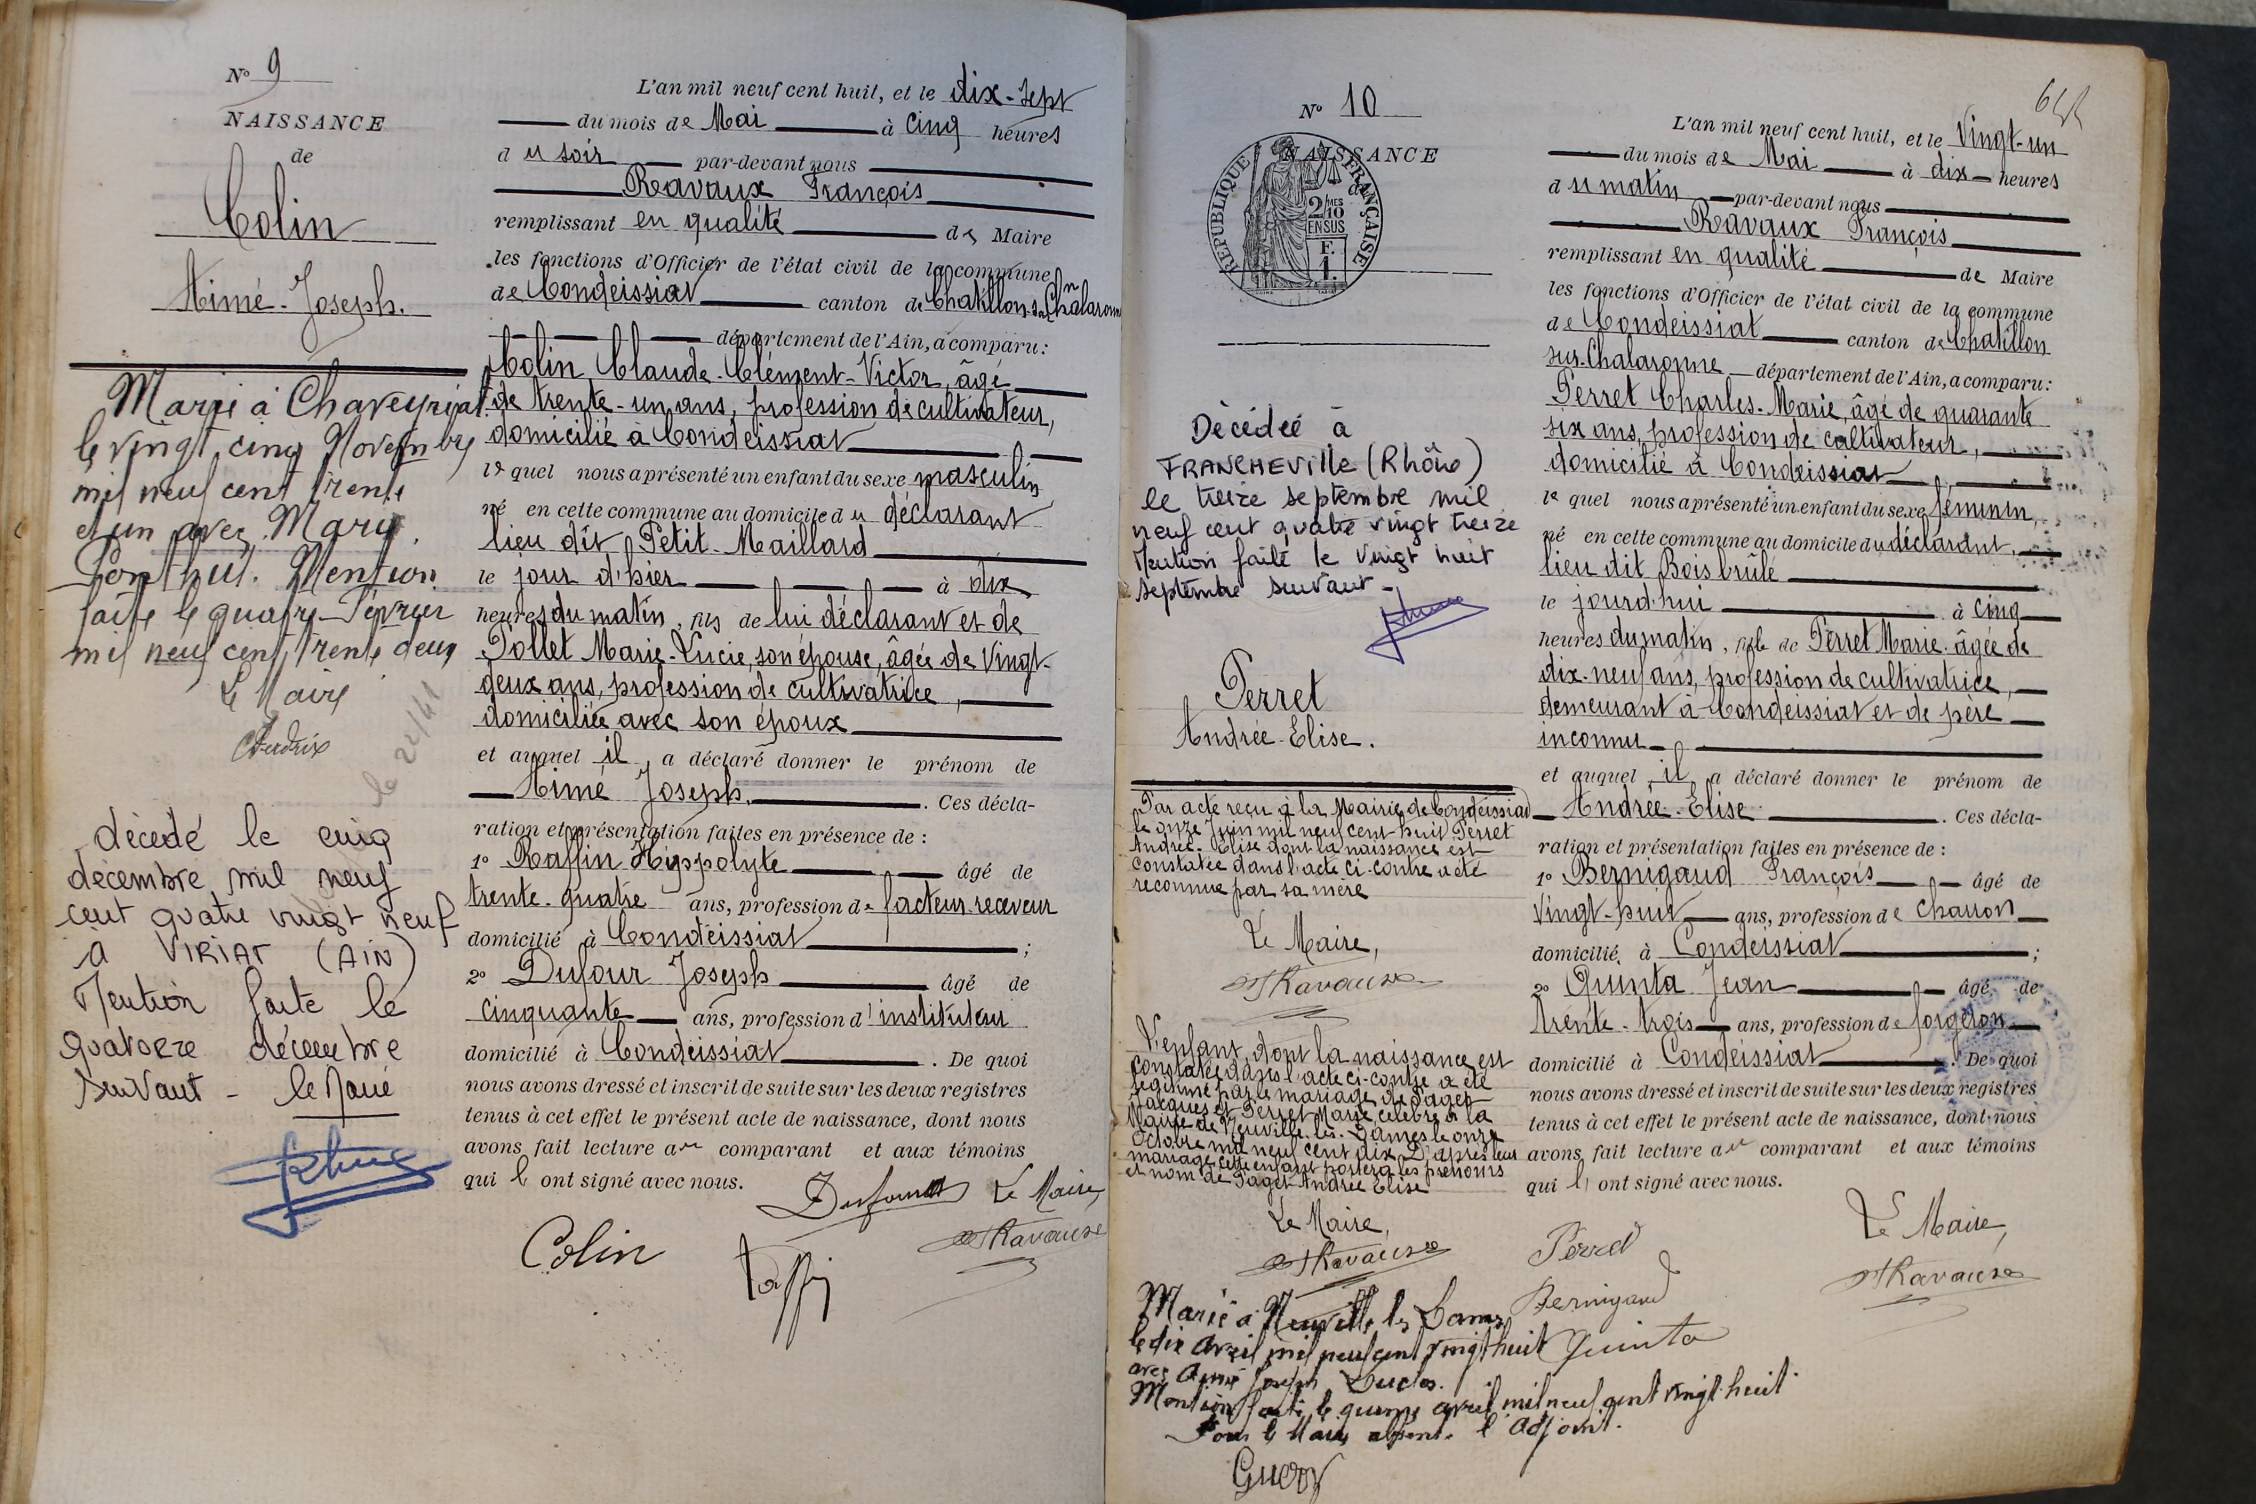 N° 9
NAISSANCE
de
Colin
Aimé-Joseph.
Marié à Chaveyriat
le vingt cinq Novembre
mil neuf cent trente
et un avec Marie
Ponthus. Mention
faite le quatre Février
mil neuf cent trente deux
Le Maire
décédé le cinq
décembre mil neuf
cent quatre vingt neuf
à VIRIAT (AIN)
Mention faite le
quatorze décembre
suivant - le Maire
L'an mil neuf cent huit, et le dix-sept
du mois de Mai à cinq heures
du soir par-devant nous
Ravaux François
remplissant en qualité de Maire
les fonctions d'Officier de l'état civil de la commune
de Condeissiat canton de Chatillon-s-Chalaronne
département de l'Ain, a comparu :
Colin Claude-Clément-Victor, âgé
de trente-un ans, profession de cultivateur,
domicilié à Condeissiat
lequel nous a présenté un enfant du sexe masculin
né en cette commune au domicile du déclarant
lieu dit Petit-Maillard
le jour d'hier à dix
heures du matin, fils de lui déclarant et de
Pollet Marie-Lucie, son épouse, âgée de vingt-
deux ans, profession de cultivatrice,
domiciliée avec son époux
et auquel il a déclaré donner le prénom de
Aimé Joseph. Ces décla-
ration et présentation faites en présence de :
1° Raffin Hyppolyte âgé de
trente-quatre ans, profession de facteur-receveur
domicilié à Condeissiat ;
2° Dufour Joseph âgé de
cinquante ans, profession d'instituteur
domicilié à Condeissiat. De quoi
nous avons dressé et inscrit de suite sur les deux registres
tenus à cet effet le présent acte de naissance, dont nous
avons fait lecture au comparant et aux témoins
qui l ont signé avec nous.
Dufour Le Maire,
Colin Raffin Ravaux
N° 10
NAISSANCE
de
REPUBLIQUE FRANÇAISE
2/10
MES
EN SUS
F.
1.
Décédée à
FRANCHEVILLE (Rhône)
le treize septembre mil
neuf cent quatre vingt treize
Mention faite le vingt huit
septembre suivant -
Perret
Andrée-Elise.
Par acte reçu à la Mairie de Condeissiat
le onze Juin mil neuf cent huit Perret
Andrée-Elise dont la naissance est
constatée dans l'acte ci-contre a été
reconnue par sa mère
Le Maire,
Ravaux
L'enfant, dont la naissance est
constatée dans l'acte ci-contre a été
légitimé par le mariage de Paget
Jacques et Perret Marie célébré à la
Mairie de Neuville-les-Dames le onze
Octobre mil neuf cent dix. D'après leur
mariage cette enfant portera les prénoms
et nom de Paget Andrée Elise
Le Maire,
Ravaux
Marié à Neuville les Dames
le dix avril mil neuf cent vingt huit
avec Aimé Joseph Duclos.
Mention faite le quinze avril mil neuf cent vingt-huit.
Pour le Maire absent. l'Adjoint.
L'an mil neuf cent huit, et le Vingt-un
du mois de Mai à dix heures
du matin par-devant nous
Ravaux François
remplissant en qualité de Maire
les fonctions d'Officier de l'état civil de la commune
de Condeissiat canton de Chatillon
sur-Chalaronne département de l'Ain, a comparu :
Perret Charles-Marie, âgé de quarante
six ans, profession de cultivateur,
domicilié à Condeissiat
lequel nous a présenté un enfant du sexe féminin,
né en cette commune au domicile du déclarant,
lieu dit Bois brûlé
le jourd'hui à cinq
heures du matin, fille de Perret Marie âgée de
dix-neuf ans, profession de cultivatrice,
demeurant à Condeissiat et de père
inconnu
et auquel il a déclaré donner le prénom de
Andrée-Elise. Ces décla-
ration et présentation faites en présence de :
1° Bernigaud François âgé de
vingt-huit ans, profession de charron
domicilié à Condeissiat ;
2° Quinta Jean âgé de
trente-trois ans, profession de forgeron
domicilié à Condeissiat. De quoi
nous avons dressé et inscrit de suite sur les deux registres
tenus à cet effet le présent acte de naissance, dont nous
avons fait lecture au comparant et aux témoins
qui l ont signé avec nous.
Perret Le Maire,
Bernigaud Ravaux
Quinta